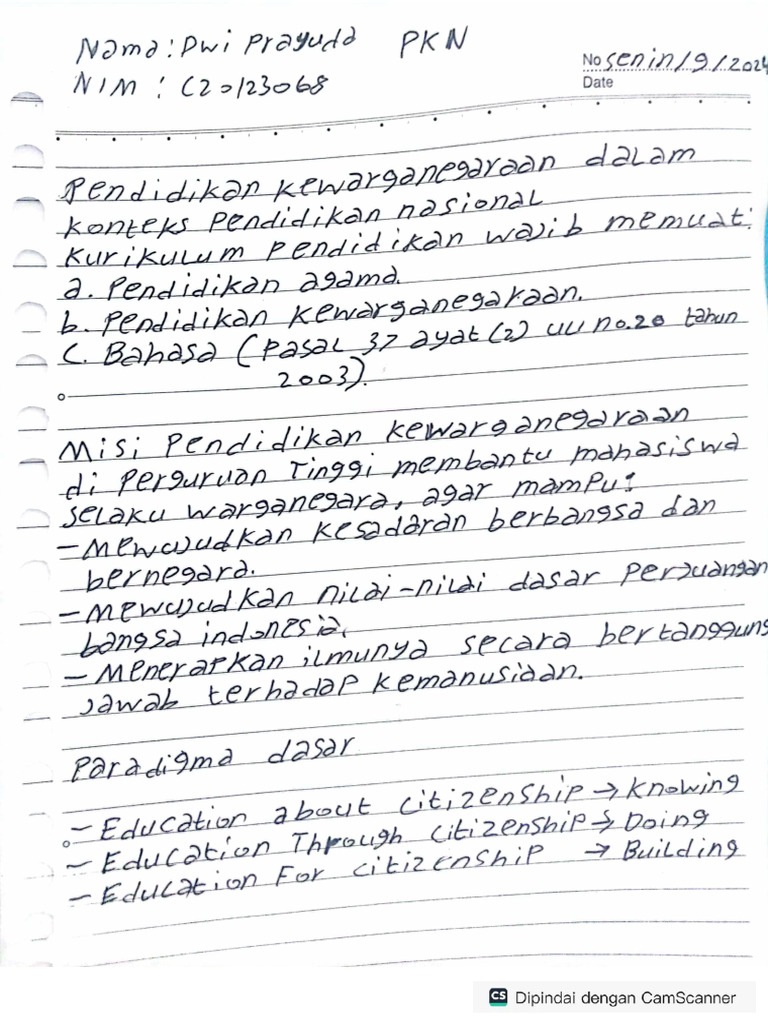 Nama : Dwi Prayuda PKN
NIM : C20123068
No Senin/9/2024
Date
Pendidikan kewarganegaraan dalam
konteks pendidikan nasional
kurikulum pendidikan wajib memuat:
a. Pendidikan agama.
b. Pendidikan kewarganegaraan.
C. Bahasa (Pasal 37 ayat (2) UU no.20 tahun
2003).
Misi Pendidikan kewarganegaraan
di Perguruan Tinggi membantu mahasiswa
selaku warganegara, agar mampu:
- Mewujudkan kesadaran berbangsa dan
bernegara.
- Mewujudkan nilai-nilai dasar Perjuangan
bangsa indonesia.
- Menerapkan ilmunya secara bertanggung
jawab terhadap kemanusiaan.
Paradigma dasar
- Education about citizenship → Knowing
- Education Through citizenship → Doing
- Education For citizenship → Building
CS Dipindai dengan CamScanner